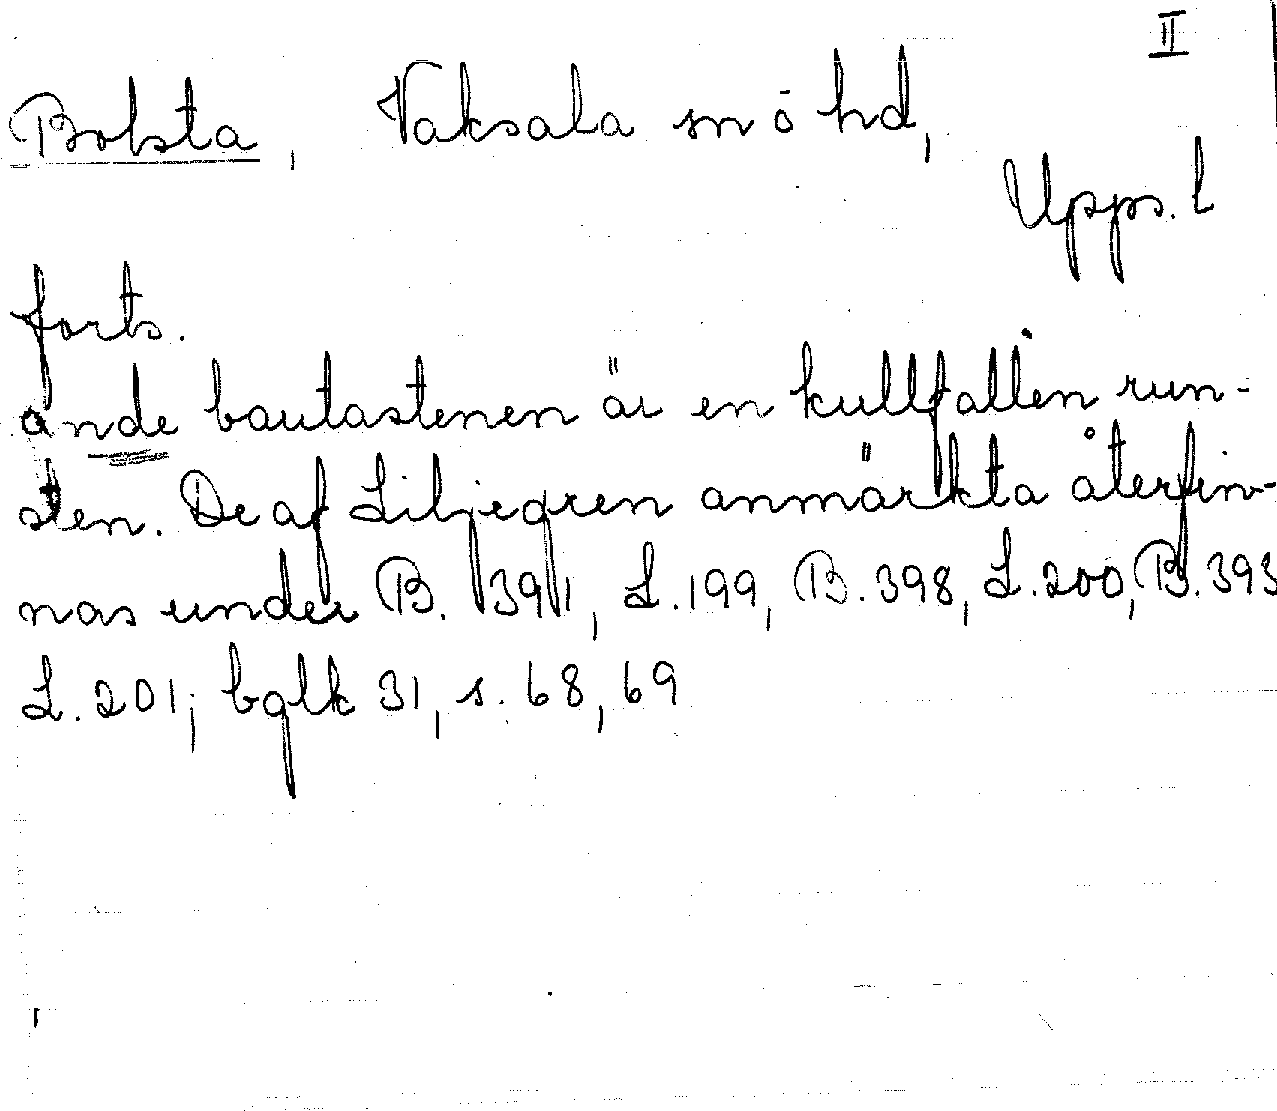 II
Bolsta, Vaksala sn o hd,
Upps. l
forts.
ande bautastenen är en kullfallen run-
sten. De af Liljegren anmärkta återfin-
nas under B. 391, L. 199, B. 398, L. 200, B. 393
L. 201; bglk 31, s. 68, 69